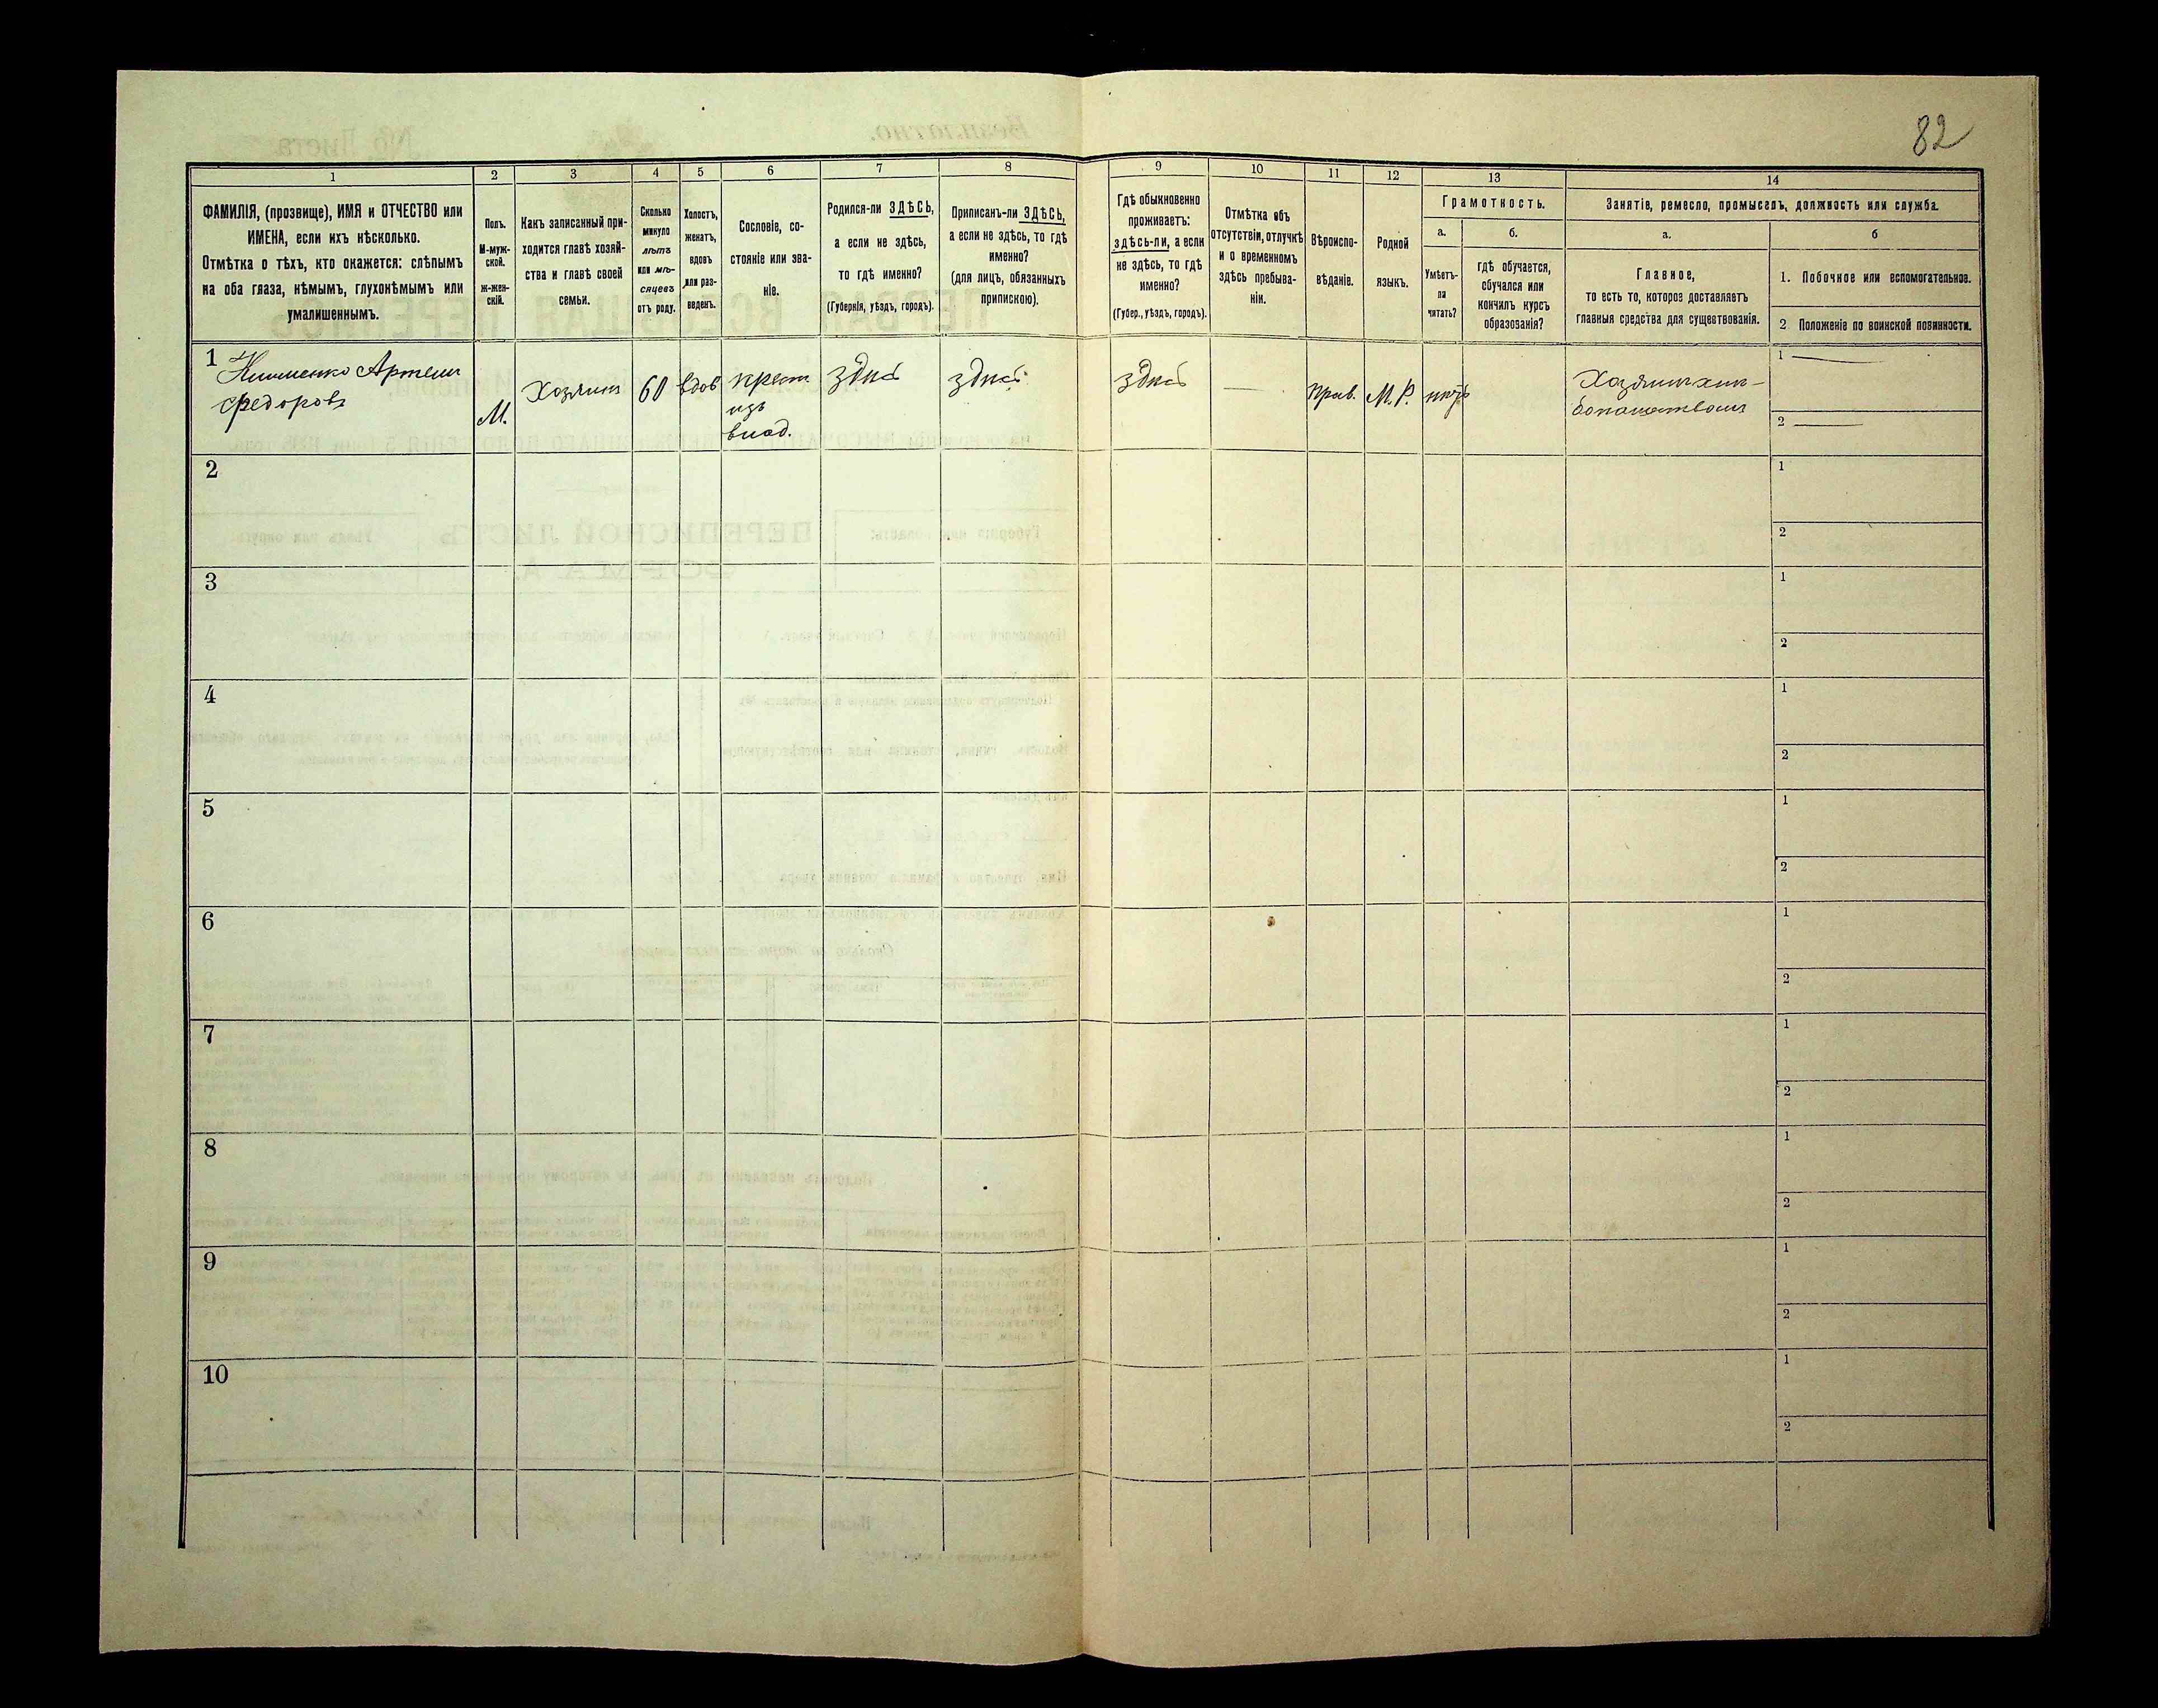 82
1
2
3
4
5
6
7
8
9
10
11
12
13
14
ФАМИЛІЯ, (прозвище), ИМЯ и ОТЧЕСТВО или
ИМЕНА, если ихъ нѣсколько.
Отмѣтка о тѣхъ, кто окажется: слѣпымъ
на оба глаза, нѣмымъ, глухонѣмымъ или
умалишеннымъ.
Полъ.
М-муж-
ской.
ж-жен-
скій.
Какъ записанный при-
ходится главѣ хозяй-
ства и главѣ своей
семьи.
Сколько
минуло
лѣтъ
или мѣ-
сяцевъ
отъ роду.
Холостъ,
женатъ,
вдовъ
или раз-
веденъ.
Сословіе, со-
стояніе или зва-
ніе.
Родился-ли ЗДѢСЬ,
а если не здѣсь,
то гдѣ именно?
(Губернія, уѣздъ, городъ).
Приписанъ-ли ЗДѢСЬ,
а если не здѣсь, то гдѣ
именно?
(для лицъ, обязанныхъ
припискою).
Гдѣ обыкновенно
проживаетъ:
здѣсь-ли, а если
не здѣсь, то гдѣ
именно?
(Губер., уѣздъ, городъ).
Отмѣтка объ
отсутствіи, отлучкѣ
и о временномъ
здѣсь пребыва-
ніи.
Вѣроиспо-
вѣданіе.
Родной
языкъ.
Грамотность.
а.
Умѣетъ-
ли
читать?
б.
гдѣ обучается,
обучался или
кончилъ курсъ
образованія?
Занятіе, ремесло, промыселъ, должность или служба.
а.
Главное,
то есть то, которое доставляетъ
главныя средства для существованія.
б
1. Побочное или вспомогательное.
2 Положеніе по воинской повинности.
1
Артем
Федоровъ
М.
Хозяин
60
вдов
крест
изъ
влад.
здѣсь
здѣсь
здѣсь
Прав.
М.Р.
нѣтъ
1
2
2
1
2
3
1
2
4
1
2
5
1
2
6
1
2
7
1
2
8
1
2
9
1
2
10
1
2